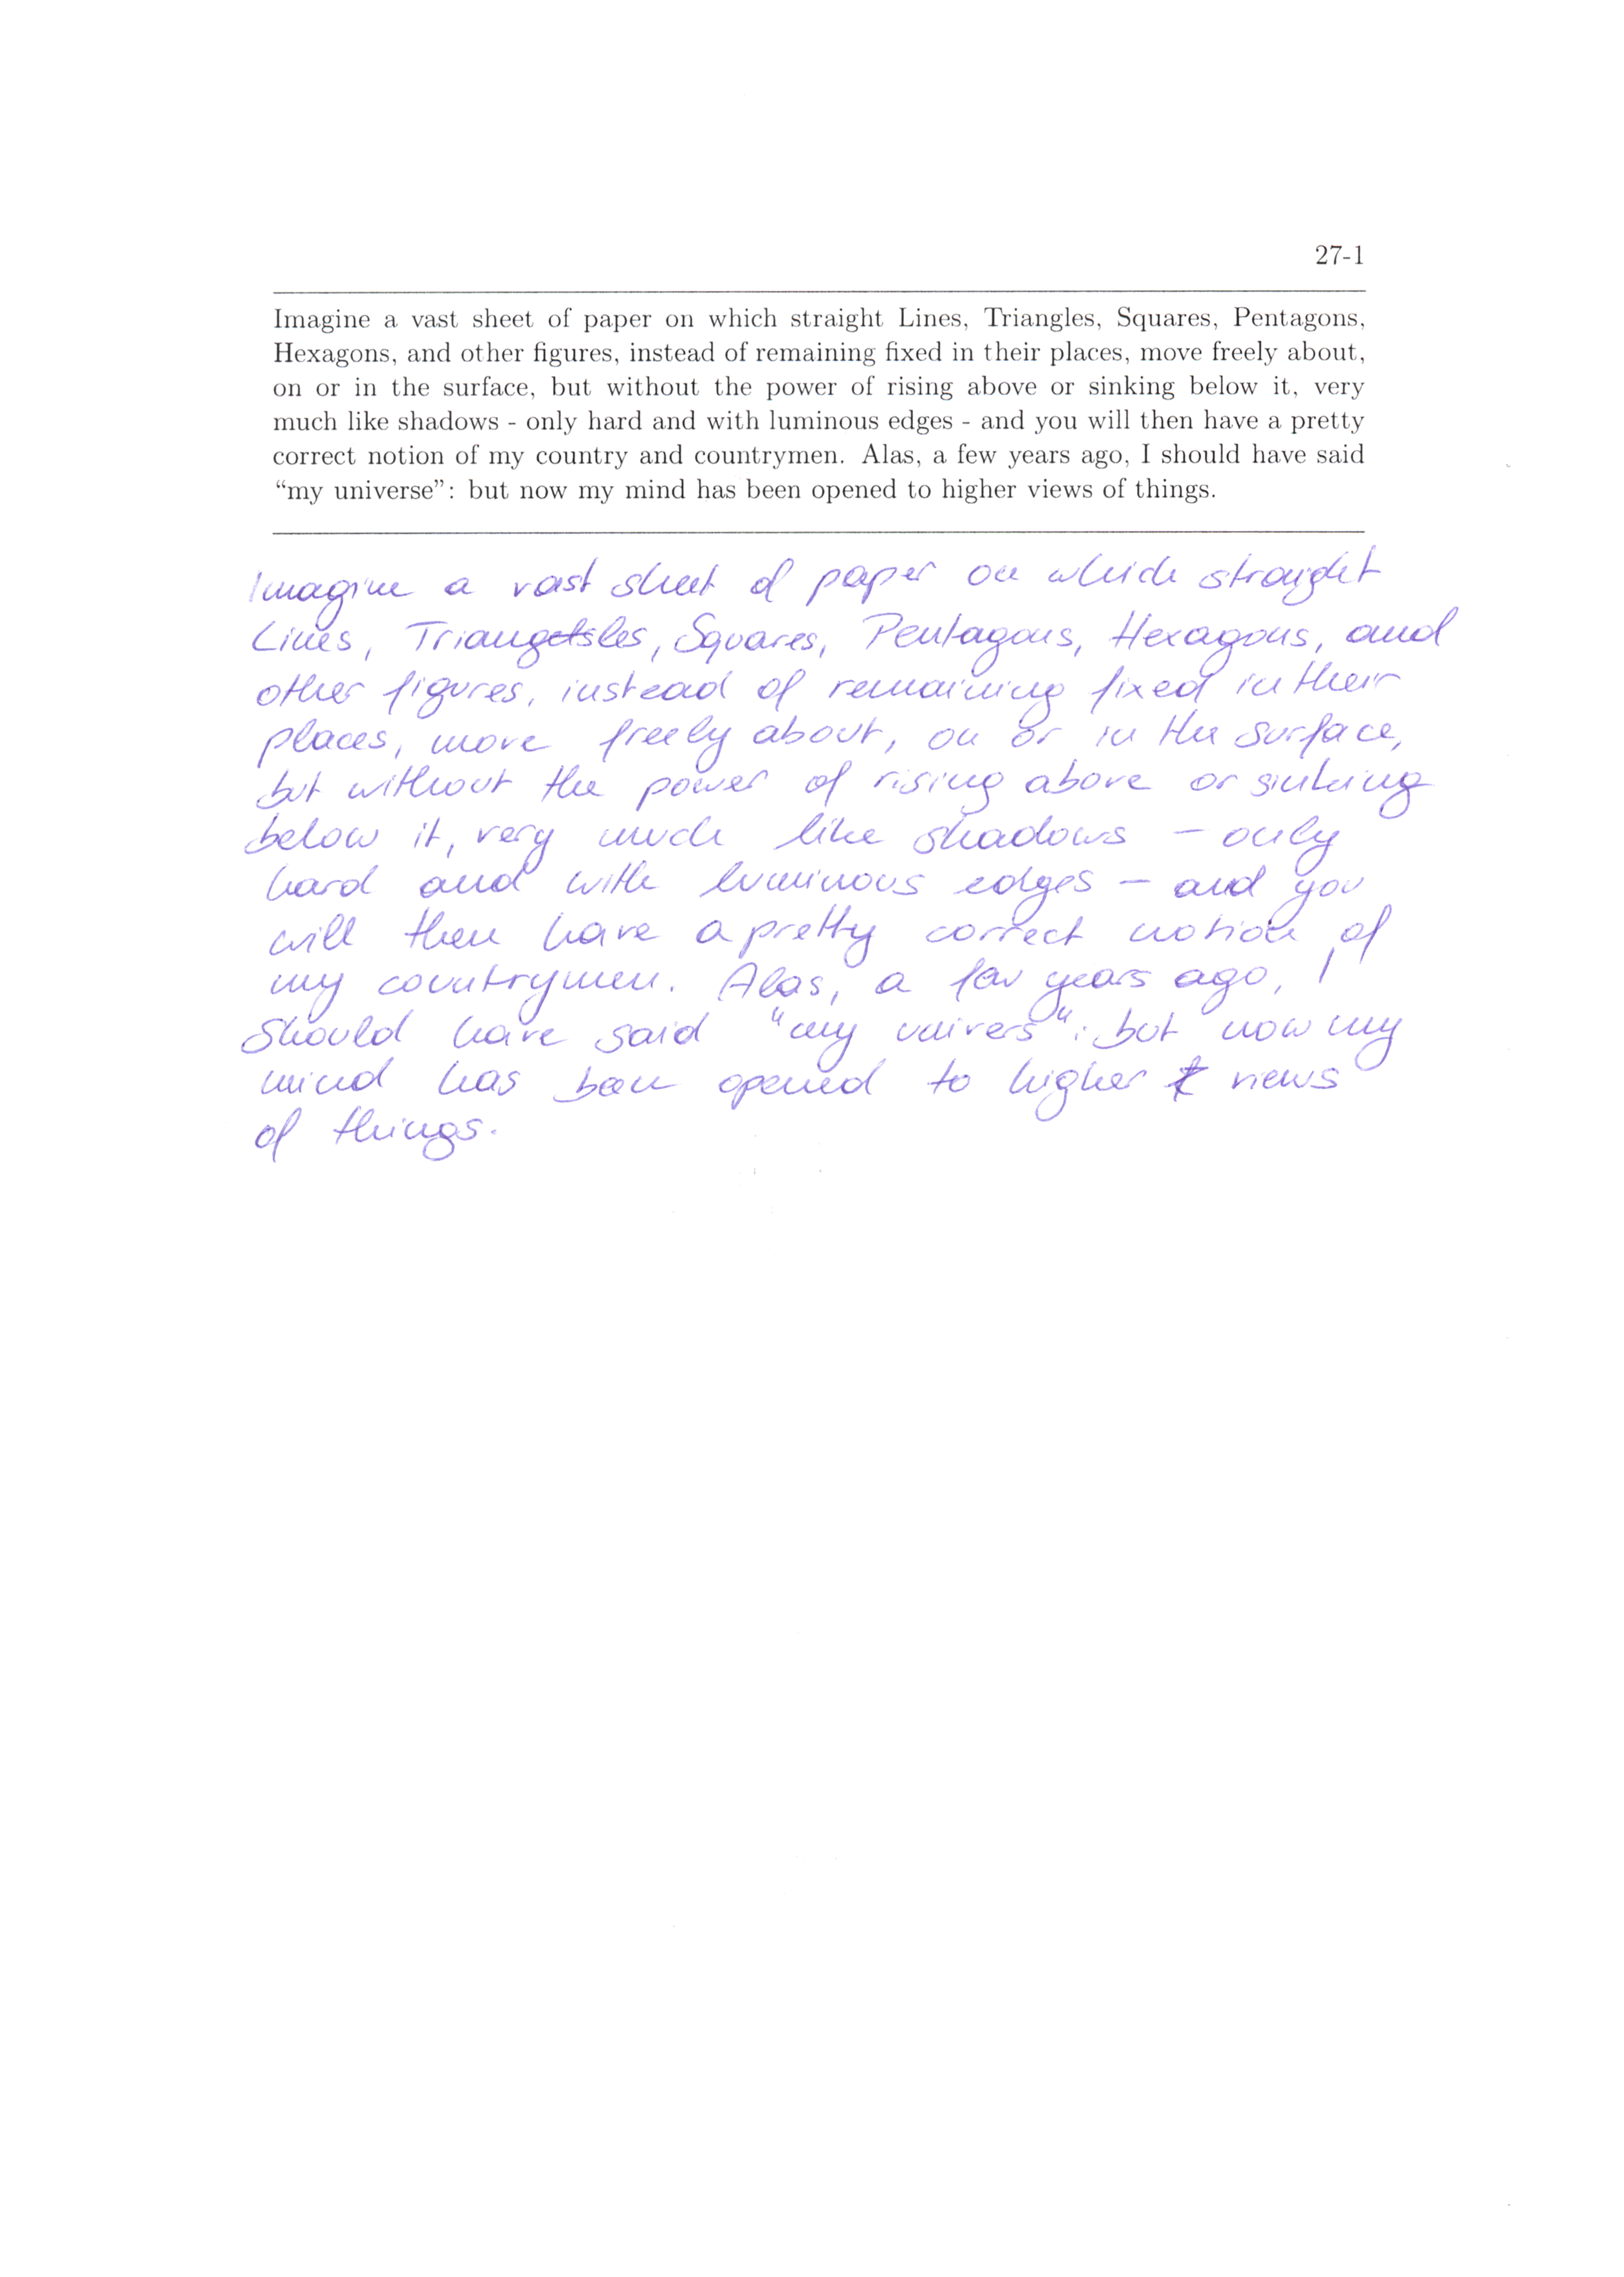 27-1
Imagine a vast sheet of paper on which straight Lines, Triangles, Squares, Pentagons,
Hexagons, and other figures, instead of remaining fixed in their places, move freely about,
on or in the surface, but without the power of rising above or sinking below it, very
much like shadows - only hard and with luminous edges - and you will then have a pretty
correct notion of my country and countrymen. Alas, a few years ago, I should have said
“my universe”: but now my mind has been opened to higher views of things.
Imagine a vast sheet of paper on which straight
Lines, Triangles, Squares, Pentagons, Hexagons, and
other figures, instead of remaining fixed in their
places, move freely about, on or in the surface,
but without the power of rising above or sinking
below it, very much like shadows – only
hard and with luminous edges – and you
will then have a pretty correct notion of
my countrymen. Alas, a few years ago, I
should have said "my univers": but now my
mind has been opened to higher views
of things.